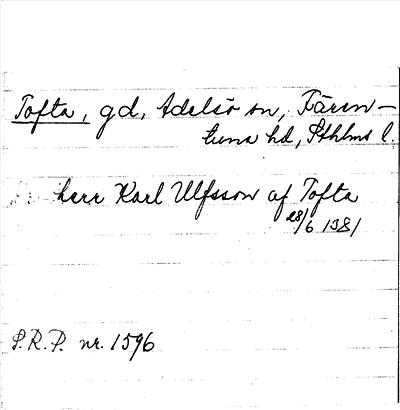 Tofta, gd, Adelsö sn, Fären-
tuna hd, Sthlms l.
herr Karl Ulfsson af Tofta
28/6 1381
S.R.P. nr. 1596